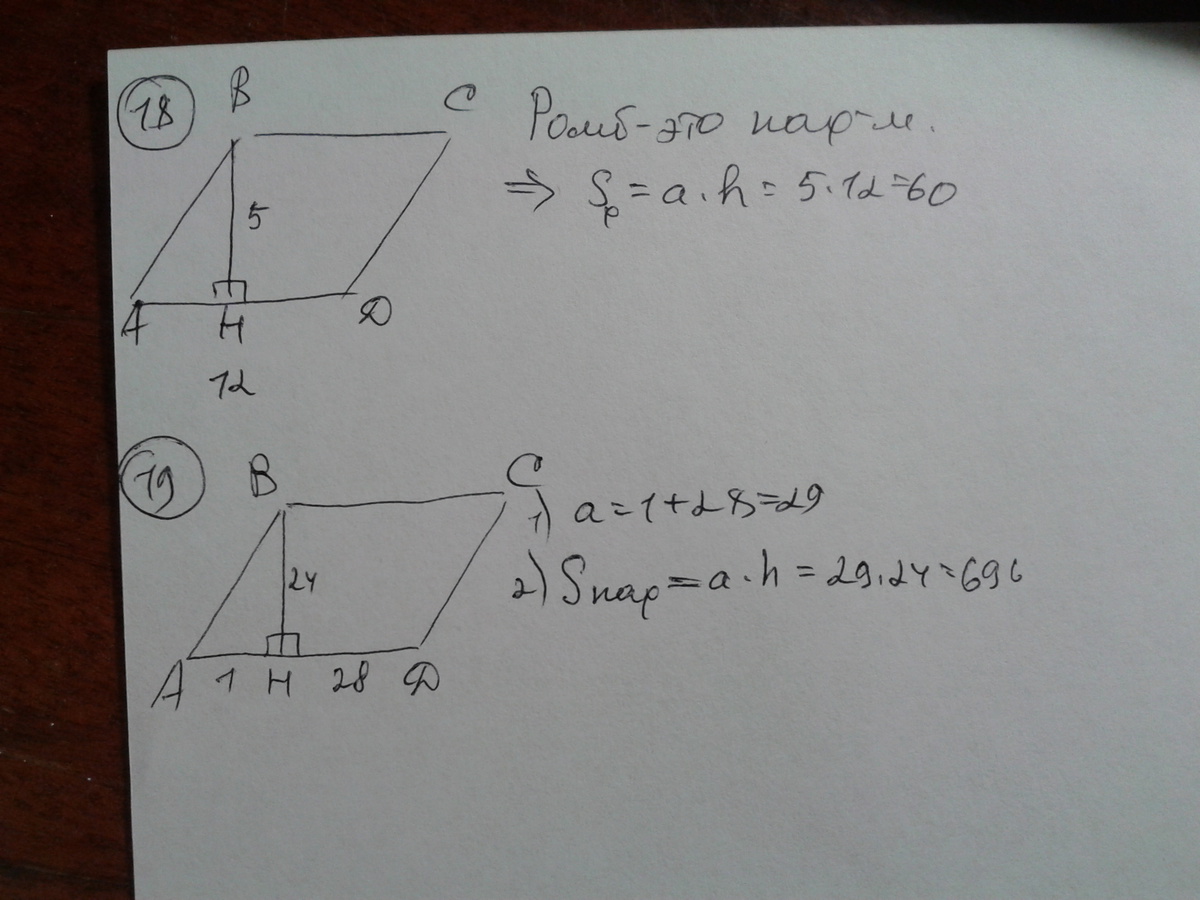 18
B C
5
A H D
12
Ромб-это пар-м.
⇒ Sр = a·h = 5·12=60
19
B C
24
A 1 H 28 D
1) a=1+28=29
2) Sпар=a·h=29·24=696